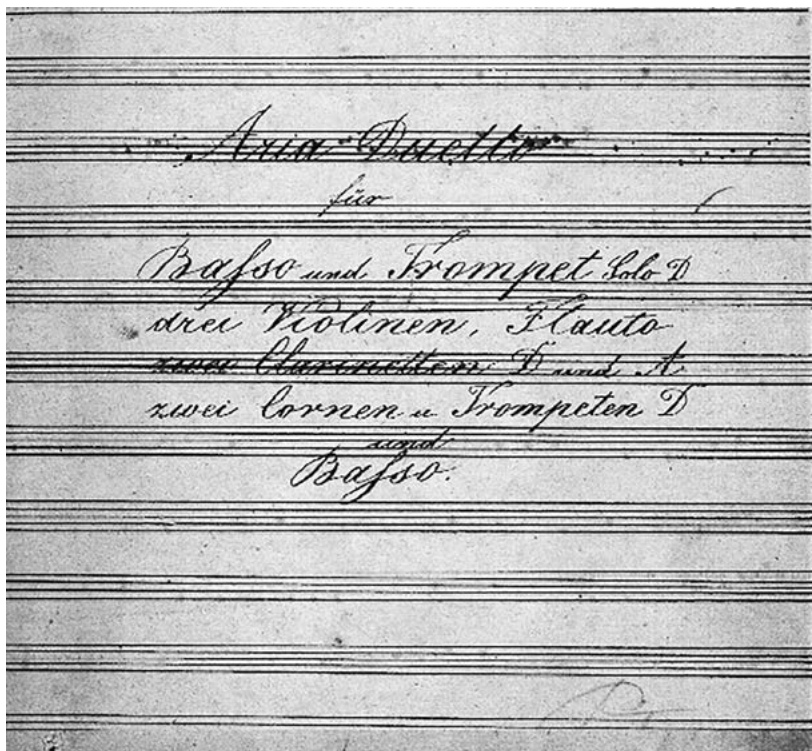 Aria Duetto
für
Baſso und Trompet Solo D
drei Violinen, Flauto
zwei Clarinetten D und A
zwei Cornen u Trompeten D
und
Baſso.